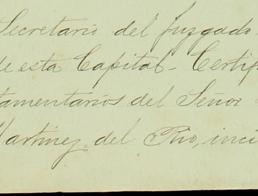 Secretario del Juzgado
de esta Capital - Certif
tamentarios del Señor
Martinez del Rio, inci